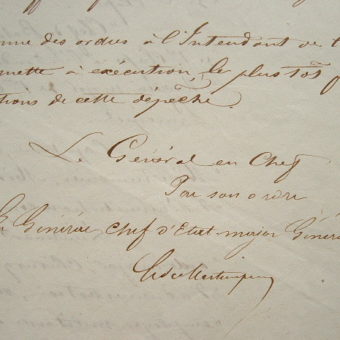 des ordres à l'Intendant de
à exécution, le plus tôt
de cette dépêche.
Le Général en Chef
Par son ordre
Le Général chef d'Etat-major Général